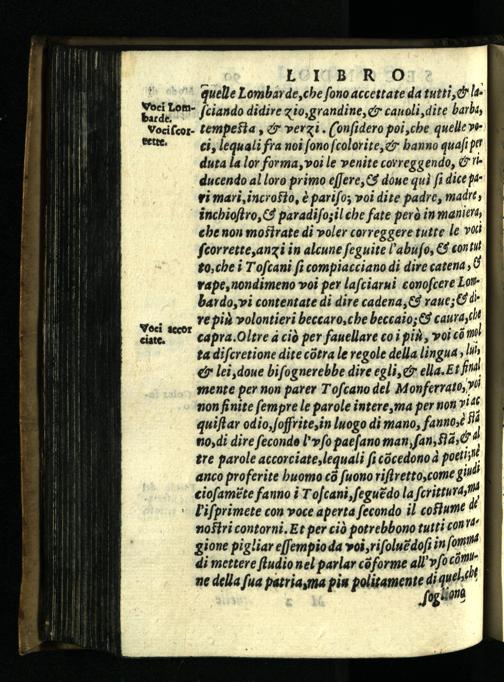 LIBRO
quelle Lombarde, che sono accettate da tutti, & la-
sciando didire zio, grandine, & cauoli, dite barba,
Voci Lom-
barde.
tempesta, & verzi. Considero poi, che quelle vo-
Voci scor-
rette.
ci, lequali fra noi sono scolorite, & hanno quasi per
duta la lor forma, voi le venite correggendo, & ri-
ducendo al loro primo essere, & doue quì si dice pa-
ri mari, incrosto, è pariso; voi dite padre, madre,
inchiostro, & paradiso; il che fate però in maniera,
che non mostrate di voler correggere tutte le voci
scorrette, anzi in alcune seguite l'abuso, & con tut
to, che i Toscani si compiacciano di dire catena, &
rape, nondimeno voi per lasciarui conoscere Lom-
bardo, vi contentate di dire cadena, & raue; & di-
re più volontieri beccaro, che beccaio; & caura, che
Voci accor
ciate.
capra. Oltre à ciò per fauellare co i più, voi cō mol
ta discretione dite cōtra le regole della lingua, lui,
& lei, doue bisognerebbe dire egli, & ella. Et final
mente per non parer Toscano del Monferrato, voi
non finite sempre le parole intere, ma per non vi ac
quistar odio, soffrite, in luogo di mano, fanno, è stā
no, di dire secondo l'vso paesano man, fan, stā, & al
tre parole accorciate, lequali si cōcedono à poeti; nè
anco proferite huomo cō suono ristretto, come giudi
ciosamēte fanno i Toscani, seguēdo la scrittura, ma
l'isprimete con voce aperta secondo il costume de'
nostri contorni. Et per ciò potrebbono tutti con ra-
gione pigliar essempio da voi, risoluēdosi in somma
di mettere studio nel parlar cōforme all'vso cōmu-
ne della sua patria, ma più politamente di quel, che
sogliono